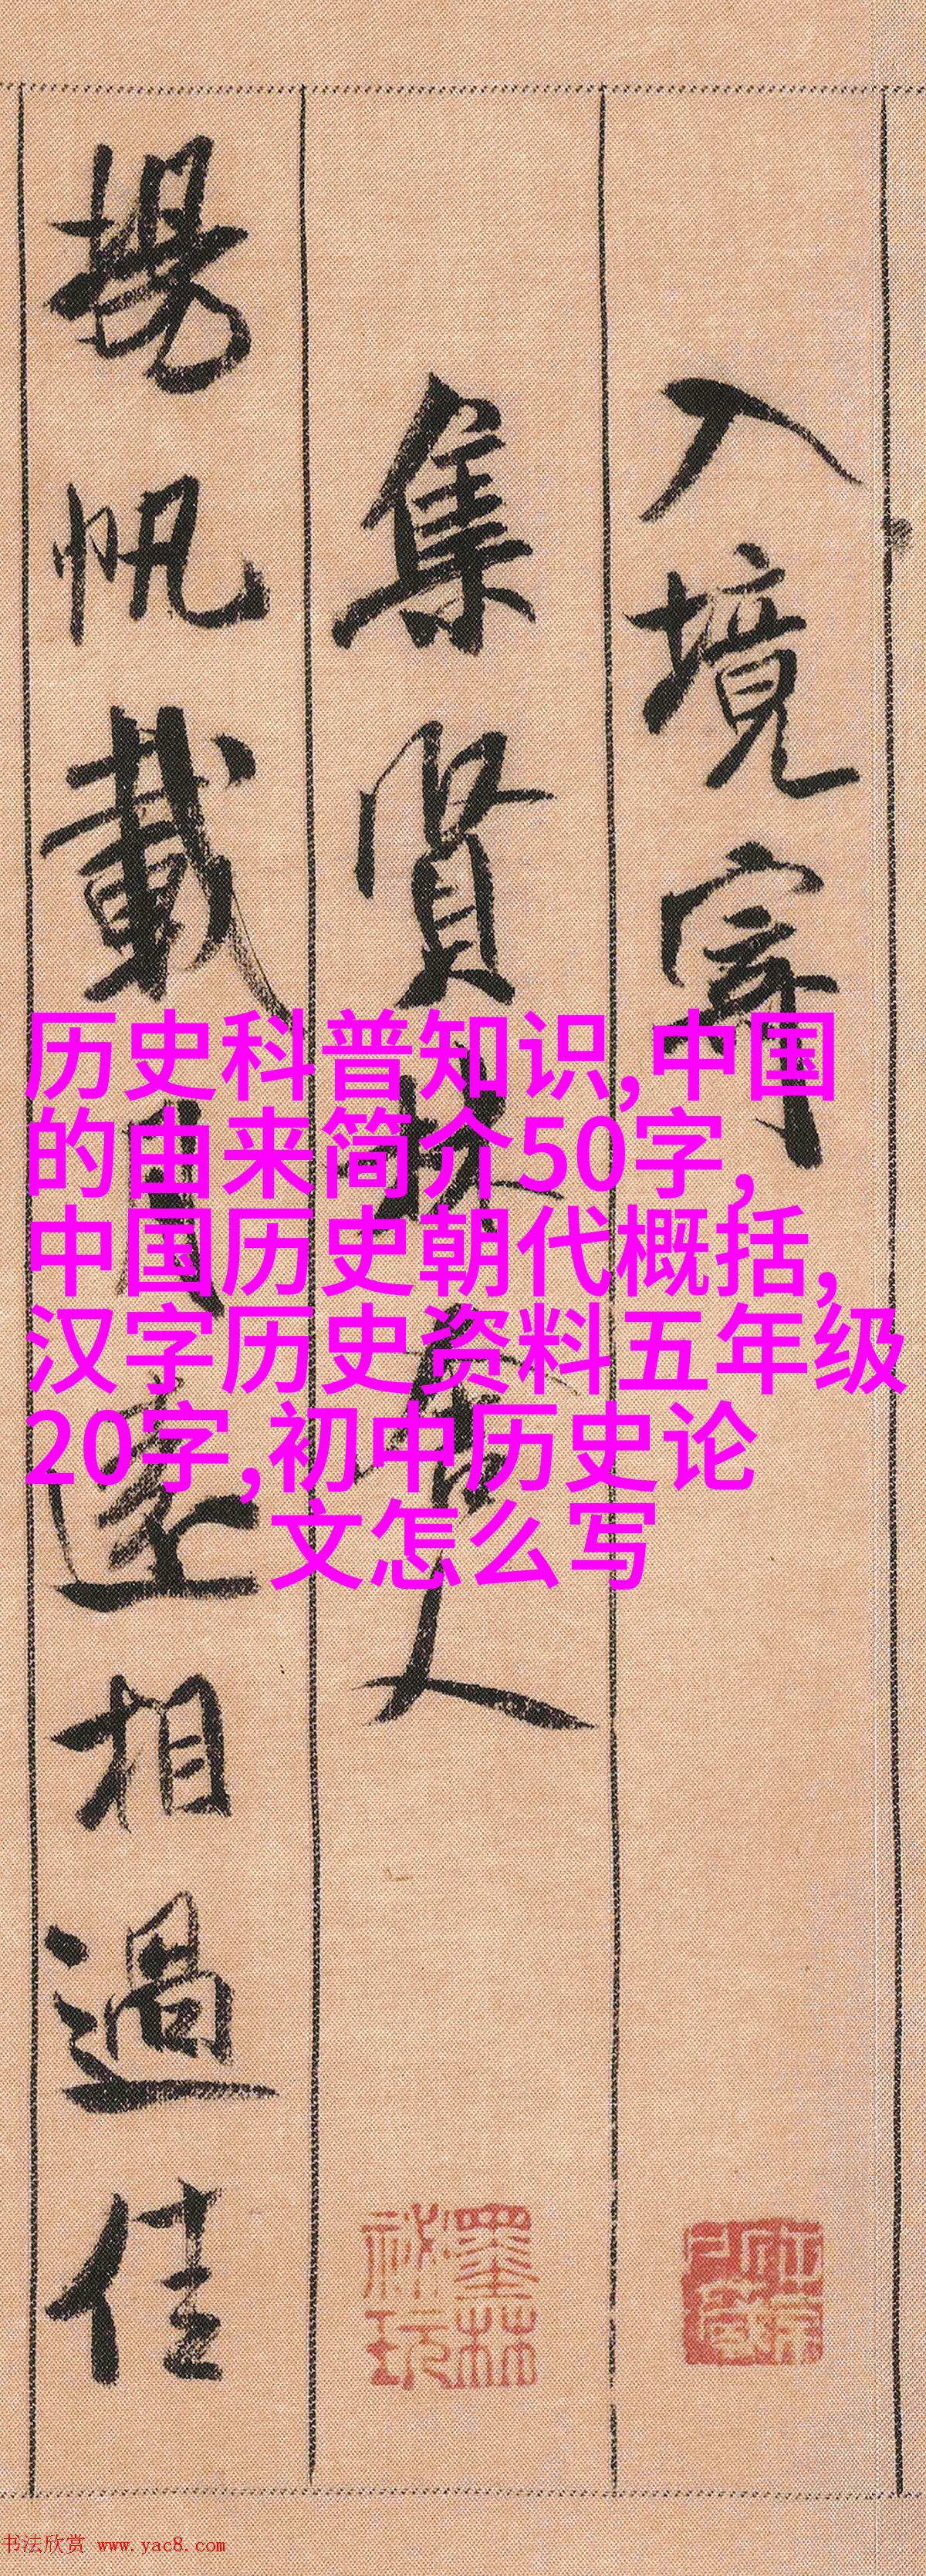 入境寄
集賢林舍人
揚帆載月遠相過佳
历史科普知识,中国
的由来简介50字,
中国历史朝代概括,
汉字历史资料五年级
20字,初中历史论
文怎么写
墨林
祕玩
书法欣赏 www.yac8.com